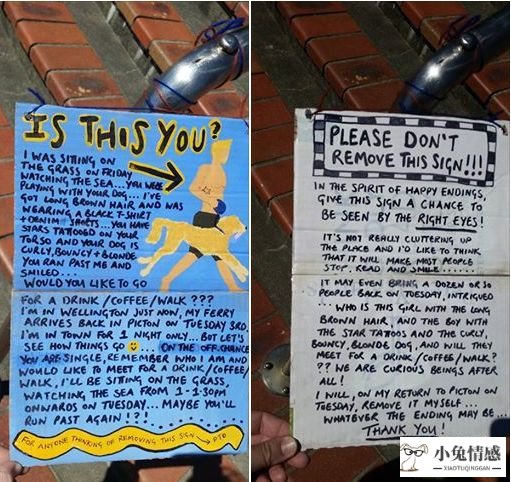 IS THIS YOU?
I WAS SITTING ON
THE GRASS ON FRIDAY
WATCHING THE SEA... YOU WERE
PLAYING WITH YOUR DOG... I'VE
GOT LONG BROWN HAIR AND WAS
WEARING A BLACK T-SHIRT
+ DENIM SHORTS... YOU HAVE
STARS TATTOOED ON YOUR
TORSO AND YOUR DOG IS
CURLY, BOUNCY + BLONDE
YOU RAN PAST ME AND
SMILED....
WOULD YOU LIKE TO GO
FOR A DRINK/COFFEE/WALK???
I'M IN WELLINGTON JUST NOW, MY FERRY
ARRIVES BACK IN PICTON ON TUESDAY 3RD.
I'M IN TOWN FOR 1 NIGHT ONLY... BUT LET'S
SEE HOW THINGS GO 😉... ON THE OFF-CHANCE
YOU ARE SINGLE, REMEMBER WHO I AM AND
WOULD LIKE TO MEET FOR A DRINK/COFFEE/
WALK, I'LL BE SITTING ON THE GRASS,
WATCHING THE SEA FROM 1-1.30PM
ONWARDS ON TUESDAY... MAYBE YOU'LL
RUN PAST AGAIN!?!
FOR ANYONE THINKING OF REMOVING THIS SIGN → PTO
PLEASE DON'T
REMOVE THIS SIGN!!!
IN THE SPIRIT OF HAPPY ENDINGS,
GIVE THIS SIGN A CHANCE TO
BE SEEN BY THE RIGHT EYES!
IT'S NOT REALLY CLUTTERING UP
THE PLACE AND I'D LIKE TO THINK
THAT IT WILL MAKE MOST PEOPLE
STOP, READ AND SMILE.......
IT MAY EVEN BRING A DOZEN OR SO
PEOPLE BACK ON TUESDAY, INTRIGUED
.. WHO IS THIS GIRL WITH THE LONG
BROWN HAIR, AND THE BOY WITH
THE STAR TATTOOS AND THE CURLY,
BOUNCY, BLONDE DOG, AND WILL THEY
MEET FOR A DRINK/COFFEE/WALK?
?? WE ARE CURIOUS BEINGS AFTER
ALL!
I WILL, ON MY RETURN TO PICTON ON
TUESDAY, REMOVE IT MYSELF...
WHATEVER THE ENDING MAY BE...
THANK YOU!
小兔情感
XIAOTUQINGGAN